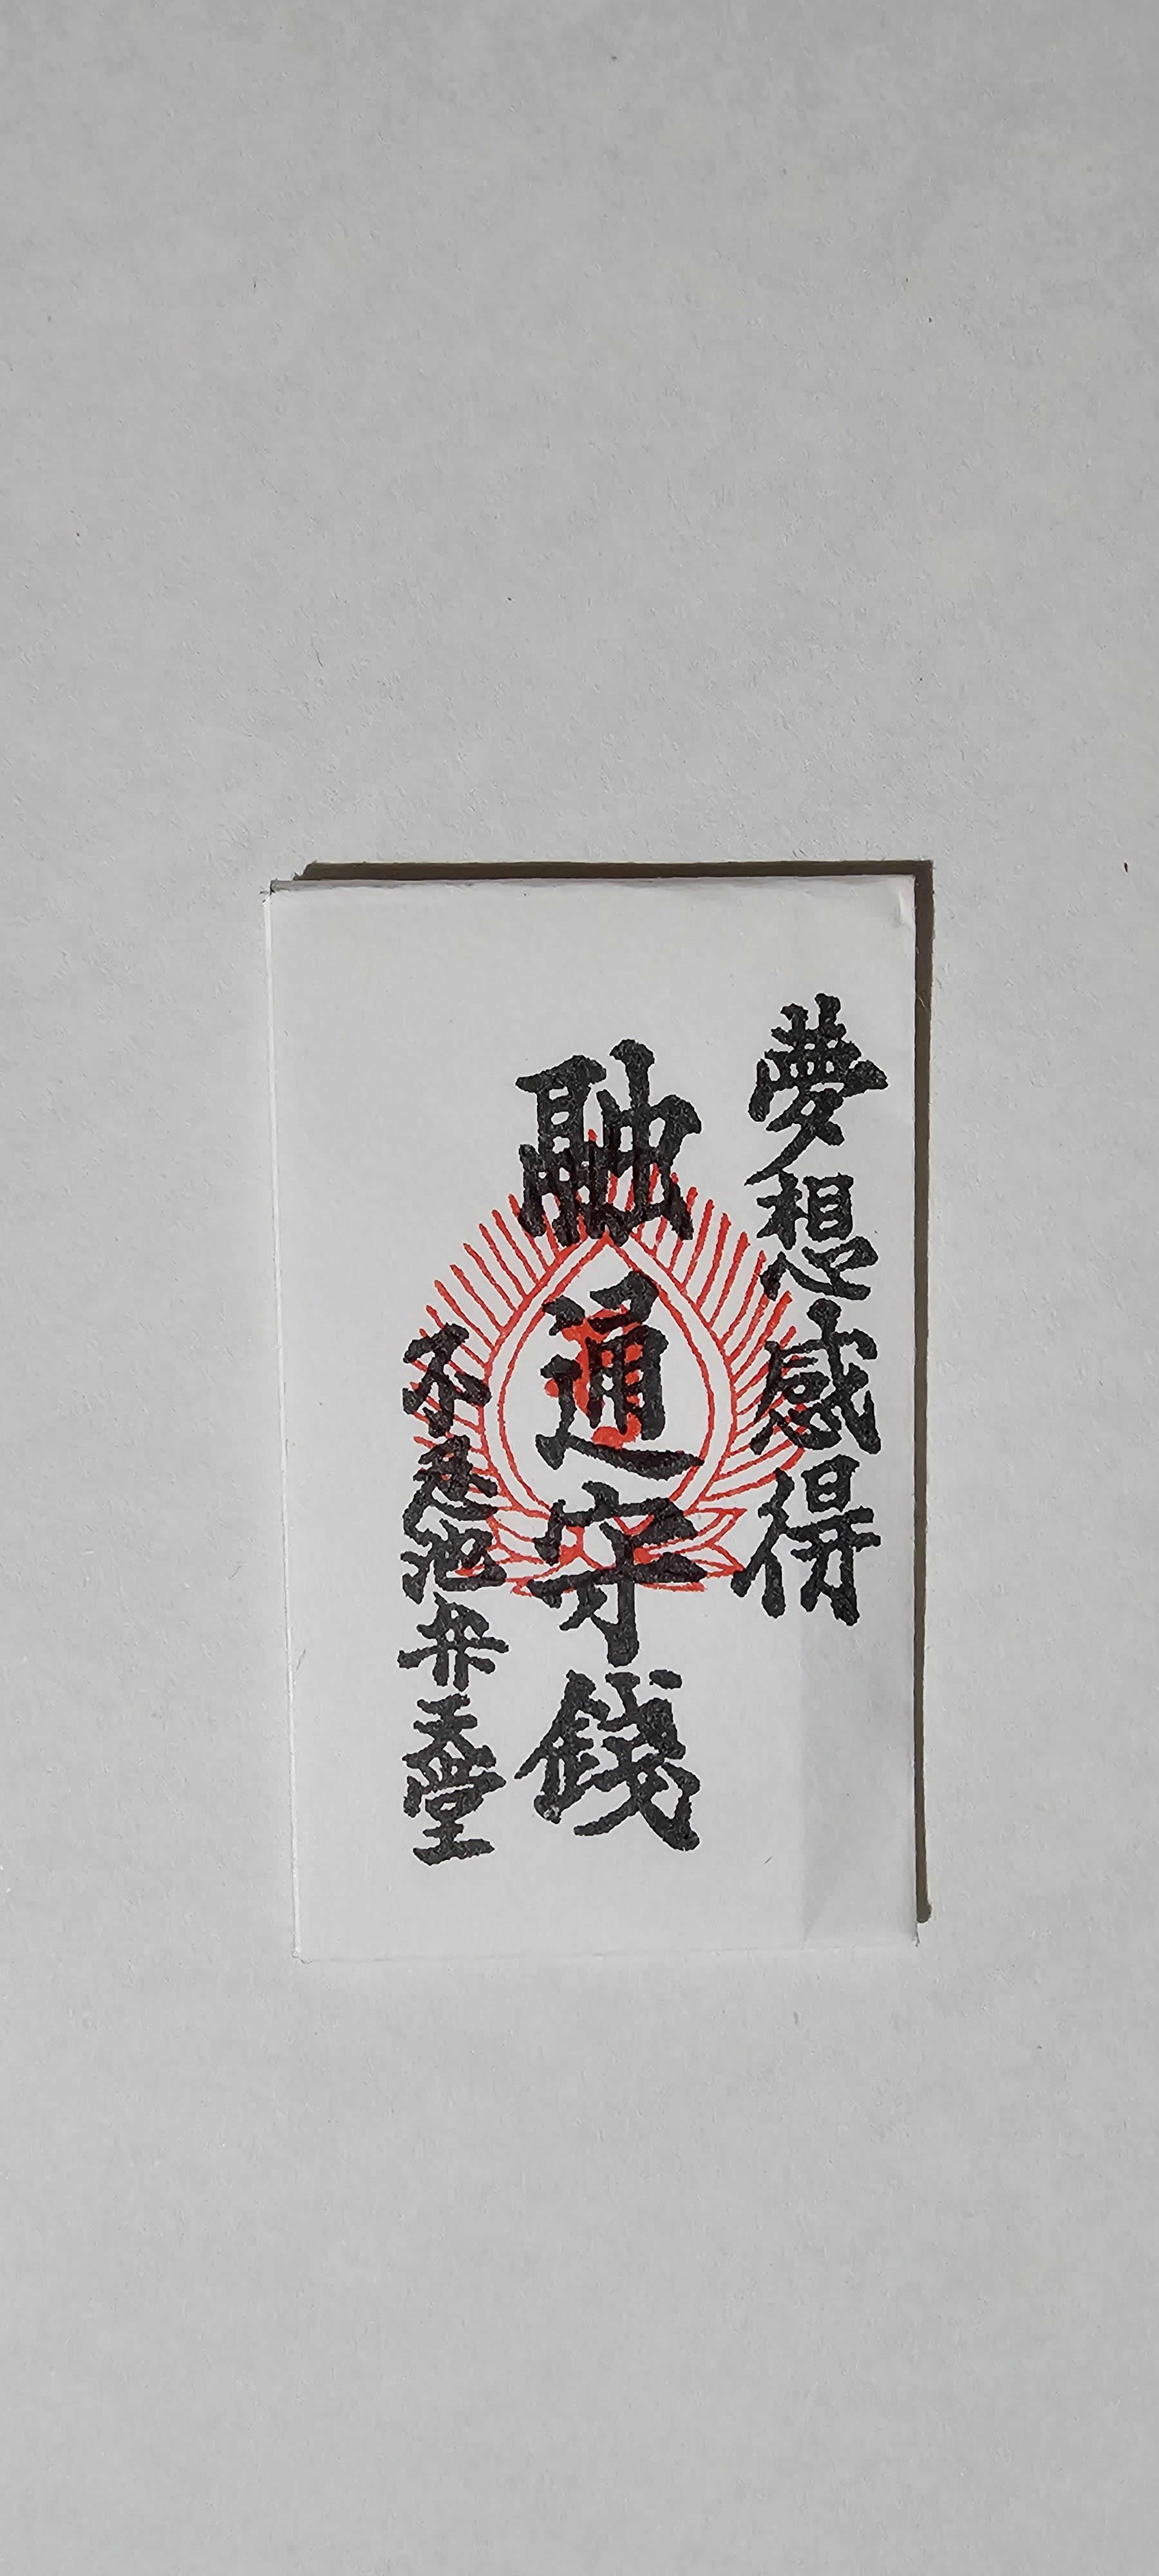 夢想感得
融通守銭
不忍池弁天堂